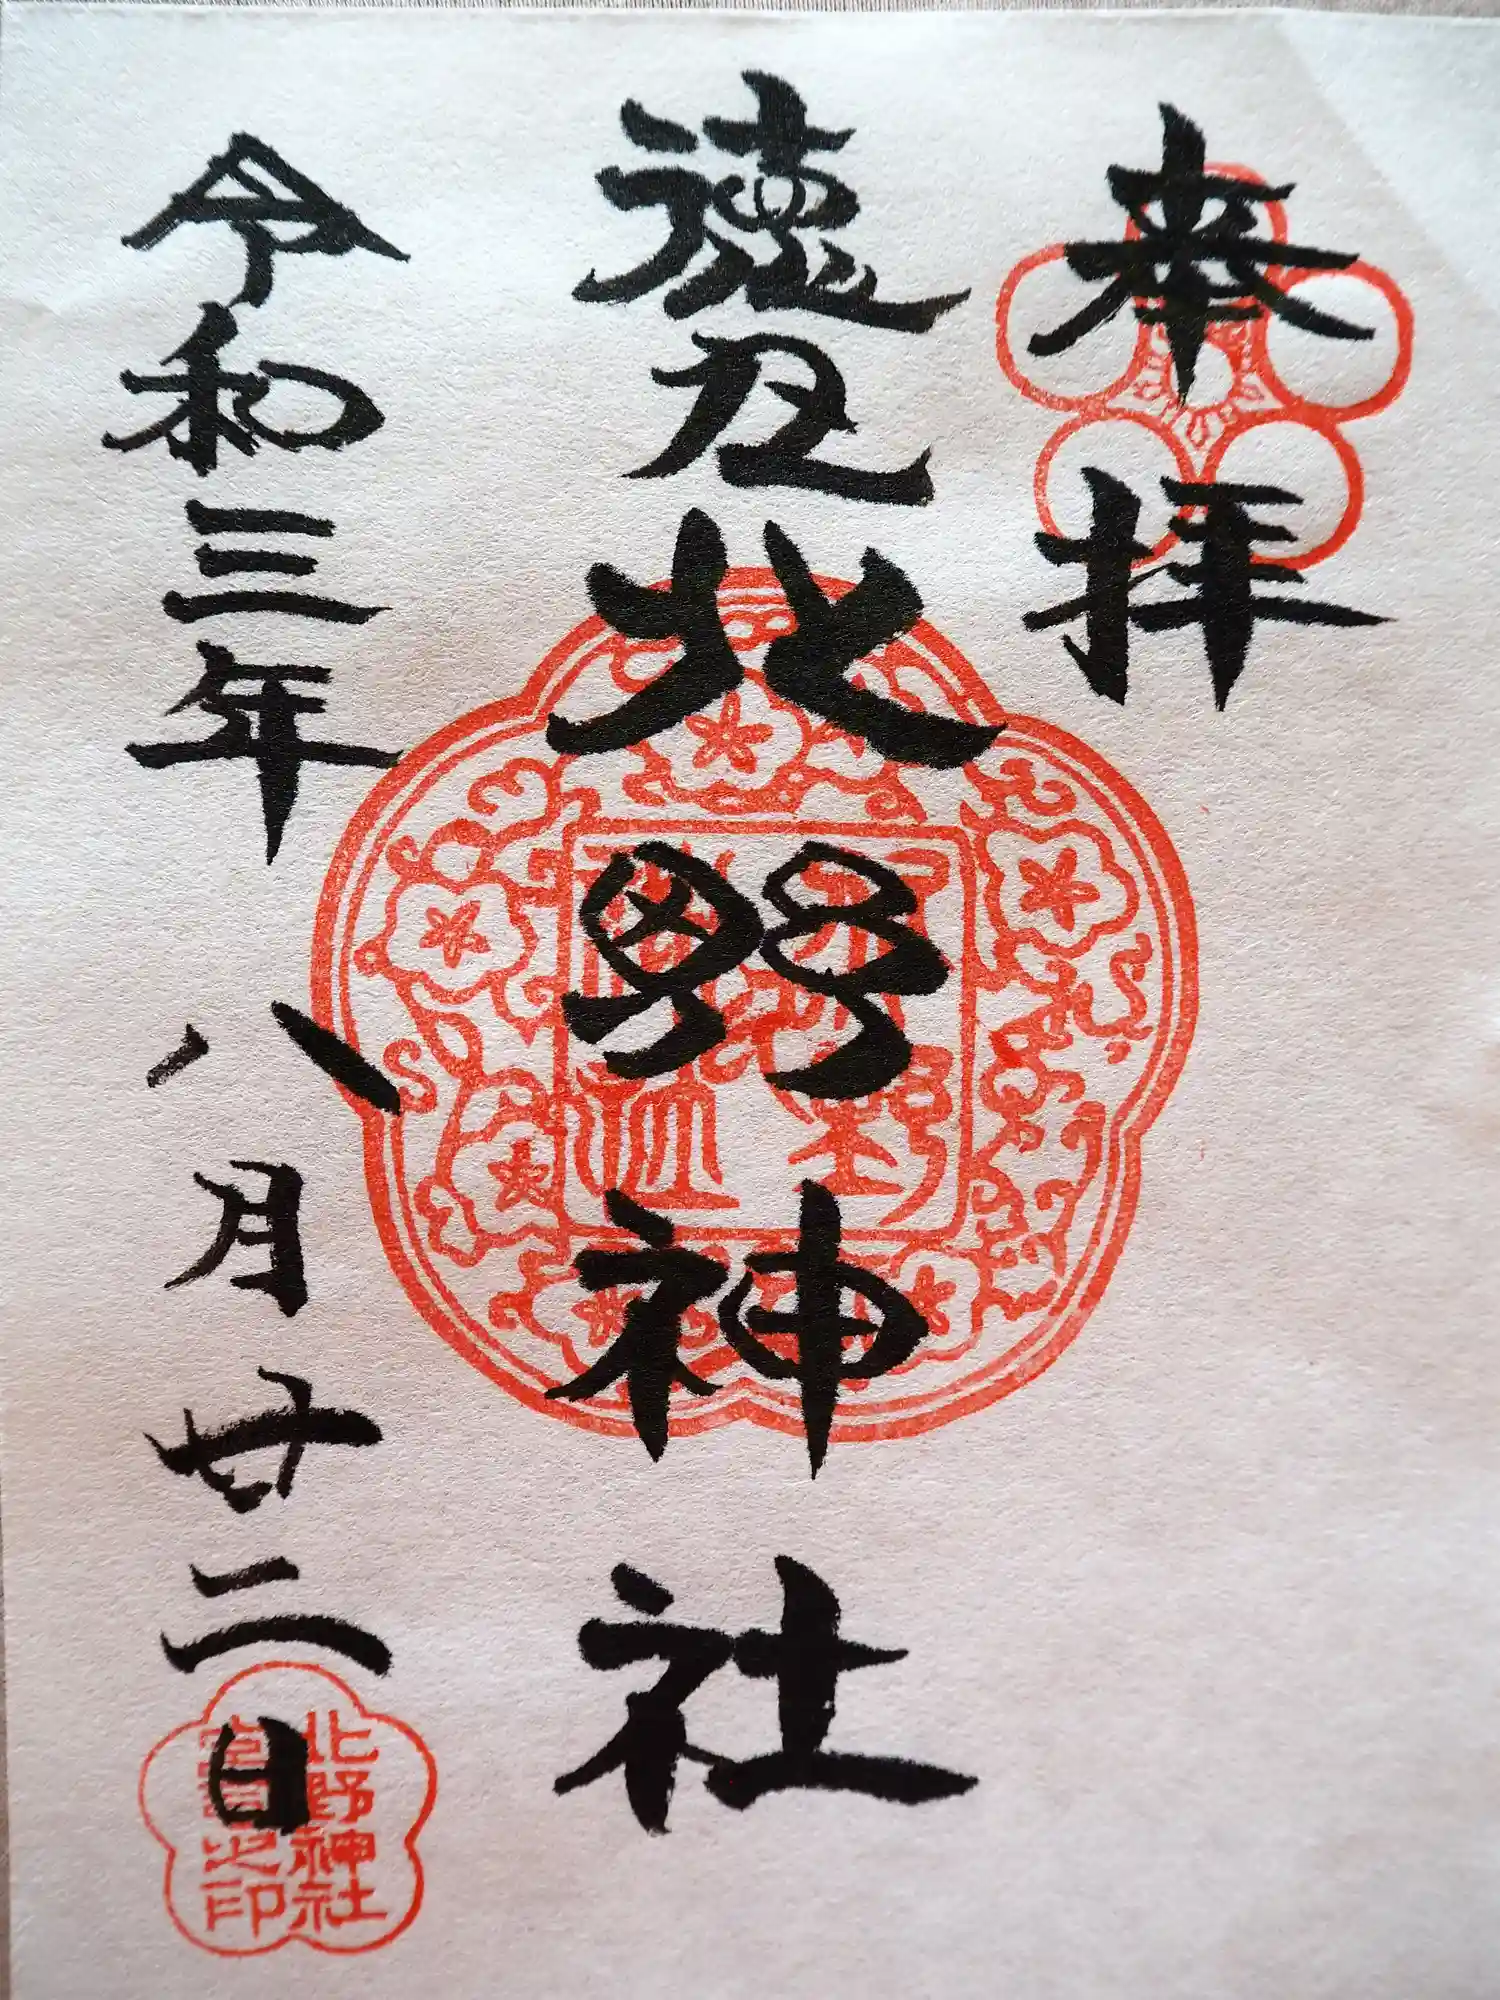 奉拝
徳丸北野神社
令和三年八月廿二日
北野神社
宮司之印